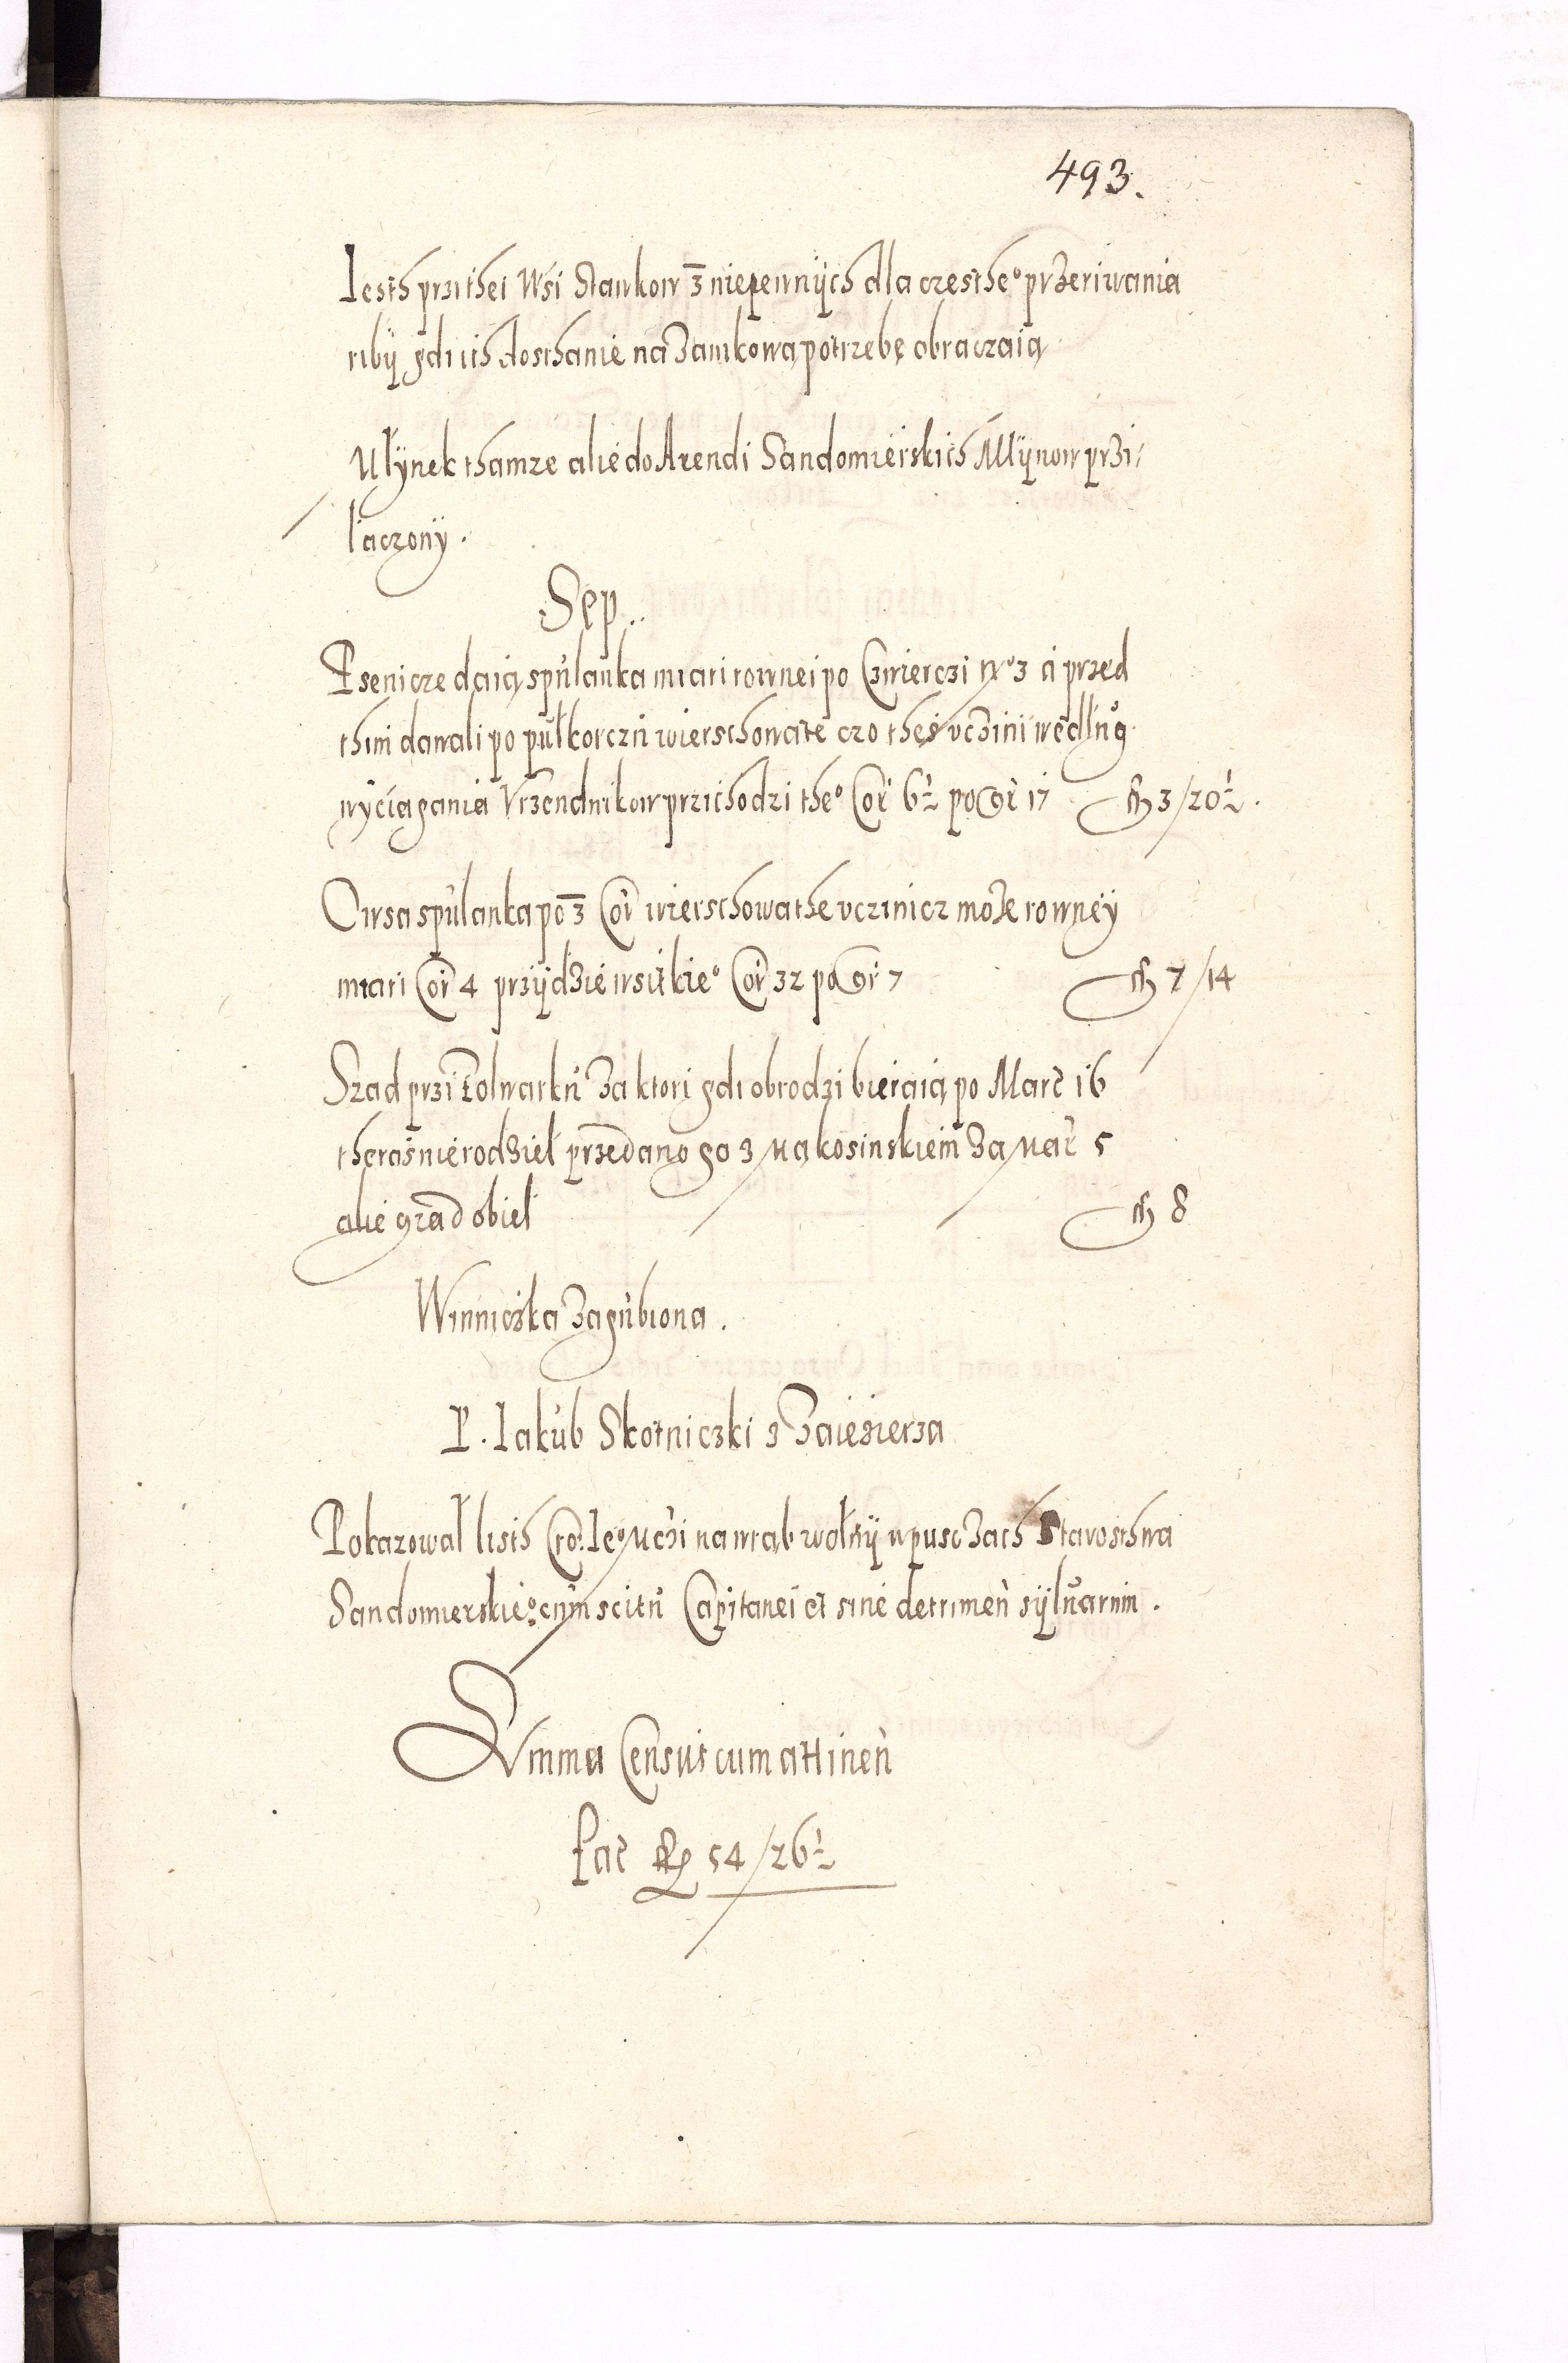 493.
Iesth przi thei Wsi stawkow 3 niepewnÿch dla czestheº przeriwania
ribÿ gdi ich dosthanie na zamkową potrzebę obraczaią
Młÿnek thamze alie do Arendi Sandomierskich Młÿnow przi
łaczonÿ.
Sep.
Psenicze daią s pułanka miari rownei po Czwierczi Nrº 3 a przed
thim dawali po pułkorczu wierschowate czo theż uczini wedlug
wÿciągania Vrzendnikow przichodzi theº Cor 6 ½ po gr 17 fl 3/20 ½.
Owsa s pułanka po 3 Cor wierschowathe vczinicz może rownëÿ
miari Cor 4 przÿdzie wsitkieº Cor 32 po gr 7 fl 7/14
Szad przi Folwarku za ktori gdi obrodzi bieraią po Marc 16
theraś nie rodzieł przedano go z Mąkosinskiem za Marc 5
alie grad obieł fl 8
Winniczka zagubiona.
P. Iakub Skotniczki z Zaiezierza
Pokazował listh Cro. Ieº Mczi na wrąb wolnÿ w pusczach Starosthwa
Sandomierskieº cum scitu Capitanei et sine detrimen sÿluarum.
Summa Census cum attinen
Fac fl 54/26 ½